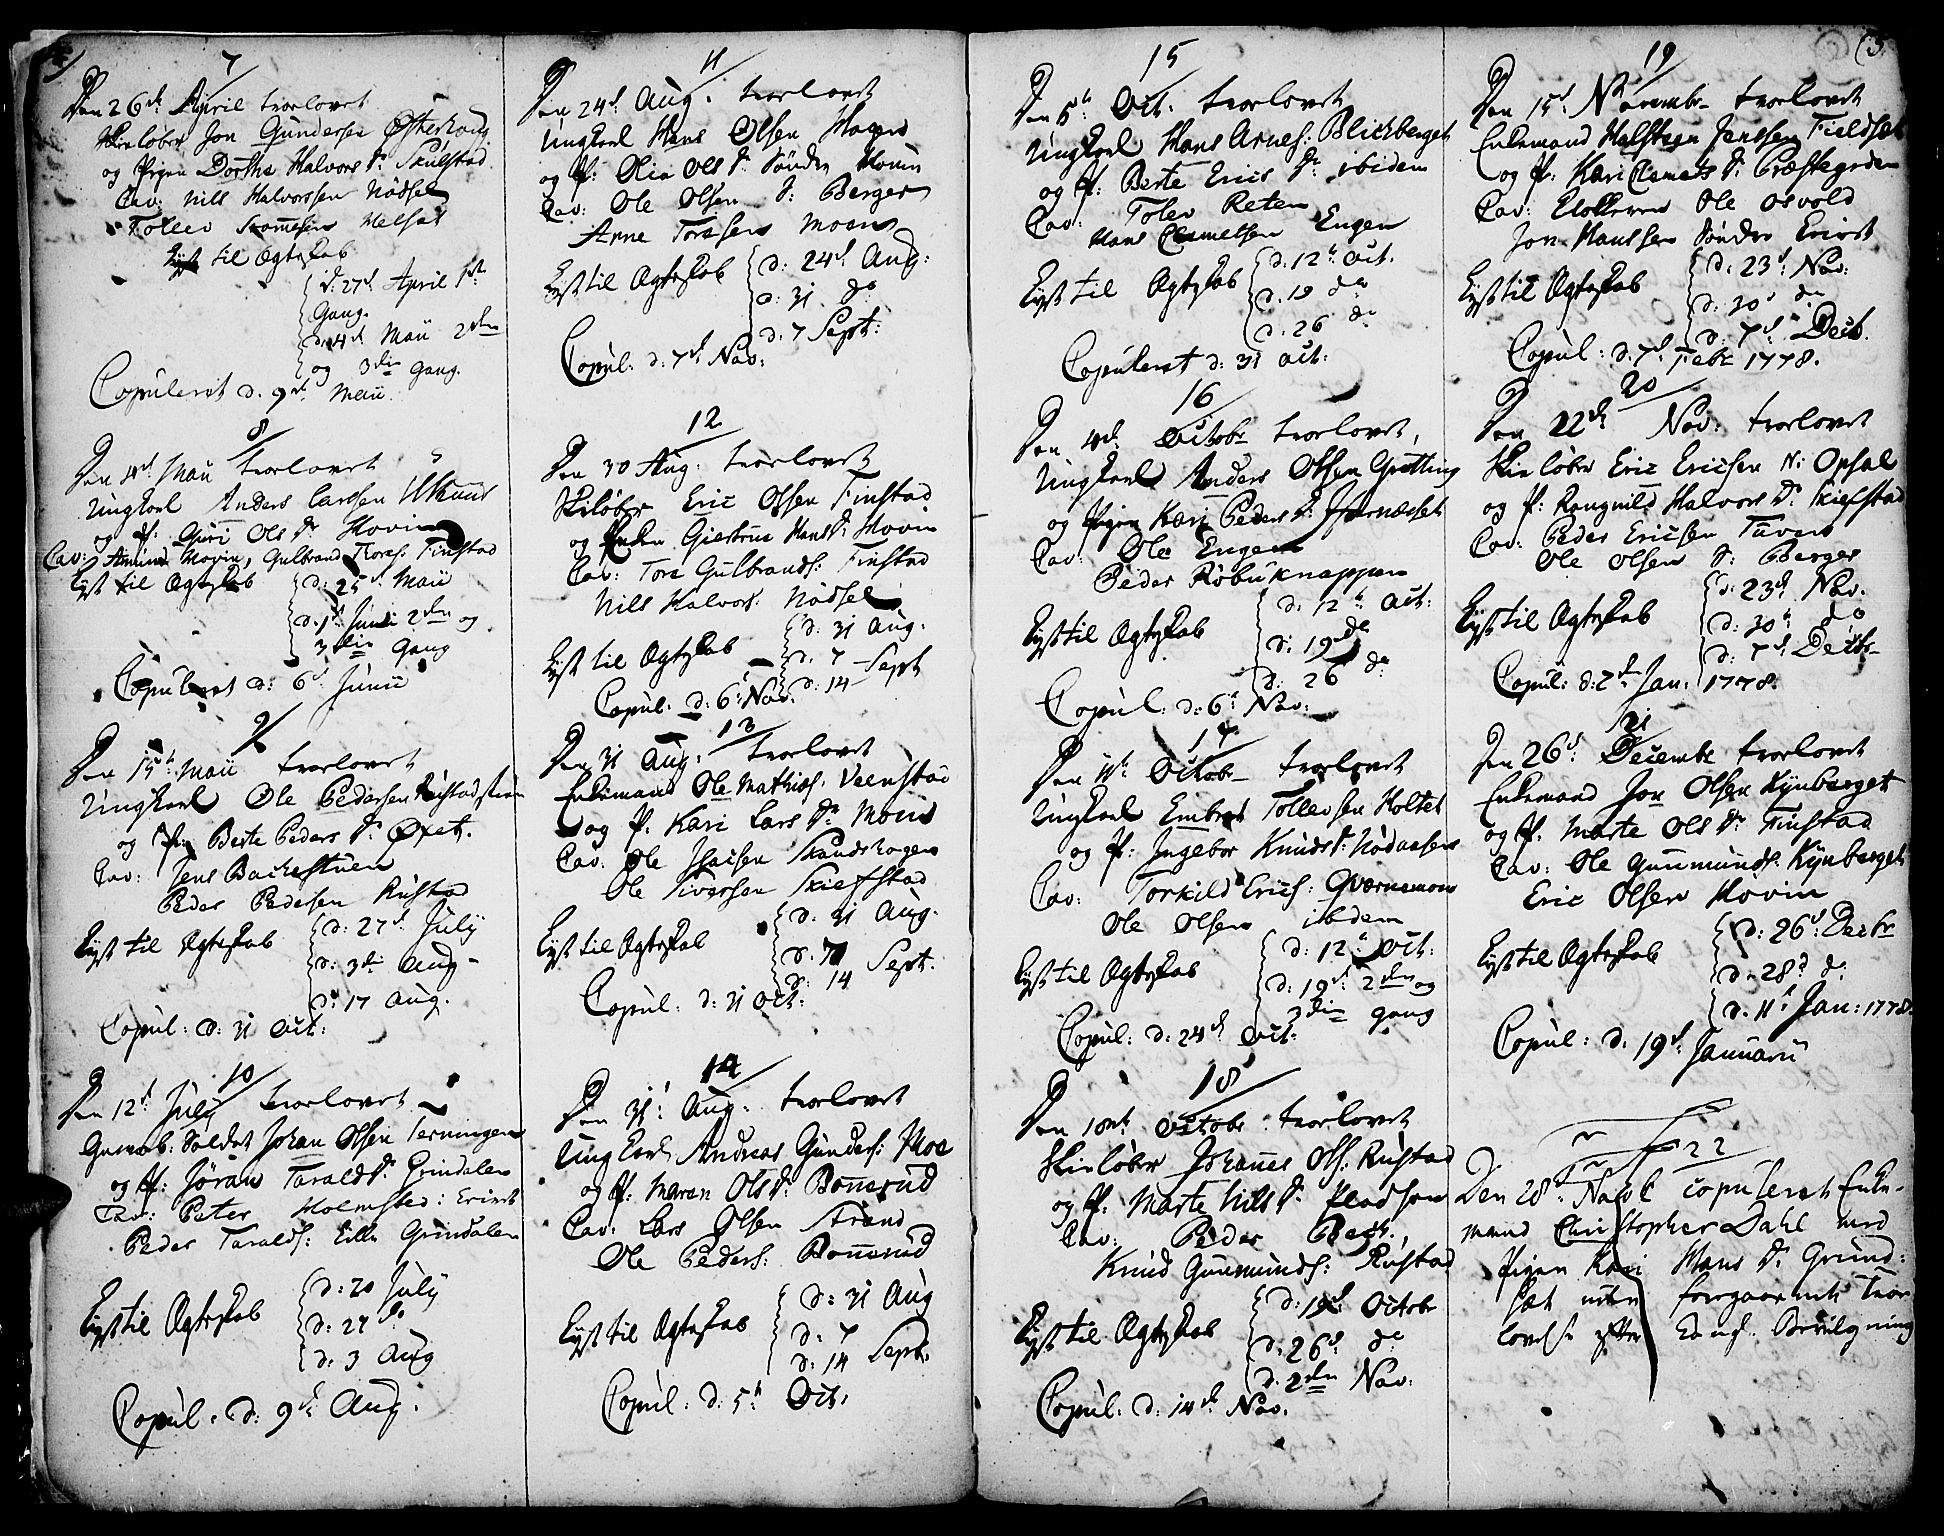 7
Den 26de April trolovet
Skieløber Jon Gundersen Østerhaug
og Pigen Dorthe Halvors Dr Skulstad
Cav: Nils Halvorssen Nødsel
Tollev Melsæt
Lyst til Ægteskab
d: 27de April 1ste
Gang.
d. 4de Maii 2den
og 3die Gang.
Copuleret d. 9de Maii.
8
Den 4de Maii trolovet
Ungkarl Anders Larssen
og P: Guri Ols Dr Hovin
Cav: Amund Hovin, Gulbrand Tores: Finstad
Lyst til Ægteskab
d: 25de Maii
d. 1ste Junii 2den og
3die Gang
Copuleret d: 6te Junii
9
Den 15de Maii trolovet
Ungkarl Ole Pedersen Rustadstuen
og P: Berte Peders Dr Øxet.
Cav: Jens Backestuen
Peder Pedersen Rustad
Lyst til Ægteskab
d: 27de July
d: 3die Aug
d: 17 Aug.
Copul: d: 31 Oct:
10
Den 12te July trolovet
Gevorb: Soldat Johan Olsen Terningen
og P: Jøran Taralds Dr Grindalen
Cav: Peter Holmsted:
Peder Taralds: Lille Grindalen
Lyst til Ægteskab
d: 20 July
d: 27 do
d: 3 Aug
Copul: d: 9de Aug.
11
Den 24de Aug. trolovet
Ungkarl Hans Olsen Moen
og P: Olia Ols Dr Søndre Hovin
Cav: Ole Olsen S: Berger
Arne Toresen Moen
Lyst til Ægteskab
d: 24de Aug:
d: 31 do
d: 7 Sept:
Copul: d: 7de Nov:
12
Den 30 Aug: trolovet
Skiløber Eric Olsen Finstad
og Enken Giertrue Hans Dr Hovin
Cav: Tore Gulbrands: Finstad
Nils Halvors: Nødsel
Lyst til Ægteskab
d: 31 Aug.
d. 7 Sept
d: 14
Copul: d: 6te Nov:
13
Den 31 Aug: trolovet
Enkemand Ole Mathias: Veenstad
og P. Kari Lars Dr Moen
Cav: Ole Skandshagen
Ole Siversen Skiefstad
Lyst til Ægteskab
d: 31 Aug.
d: 7 Sept.
d: 14
Copul: d: 31 Oct:
14
Den 31te Aug. trolovet
Ungkarl Andreas Gunders: Moe
og P. Maren Ols Dr Bonnerud
Cav: Lars Olsen Strand
Ole Peders: Bonnerud
Lyst til Ægteskab
d: 31 Aug
d: 7
d: 14 Sept.
Copul: d: 5te Oct.
15
Den 5te Oct. trolovet
Ungkarl Hans Arnes: Blichberget
og P: Berte Erics Dr ibidem
Cav: Tolev Reten
Hans Clemetsen Engen
Lyst til Ægteskab
d. 12te Oct.
d. 19 do
d. 26 do
Copuleret d: 31 Oct:
16
Den 4de Octobr trolovet,
Ungkarl Anders Olsen Grøtting
og Pigen Kari Peders Dr Hornæsset
Cav: Ole Engen
Peder Røbuknappen
Lyst til Ægteskab
d: 12te Oct:
d: 19 do
d: 26 do
Copul: d: 6te Nov:
17
Den 11te Octobr trolovet
Ungkarl Embret Tollevsen Holtet
og P: Ingebor Knuds Dr Nødaasen
Cav: Torkild Erics: Qværnemoen
Ole Olsen ibdem
Lyst til Ægteskab
d: 12te Oct:
d: 19de 2den og
3die gang
Copul: d: 24de Oct:
18
Den 18de Octobr: trolovet
Skieløber Johannes Ols: Rustad
og P: Marte Nils Dr
Cav: Peder Beck.
Knud Gunmunds: Rustad
Lyst til Ægteskab
d: 19de Octobr
d: 26de do
d: 2den Nov:
Copul: d: 14de Nov.
19
Den 15de Novembr trolovet
Enkemand Halsteen Jenssen Fieldset
og P: Kari Clemets Dr Præstegrden
Cav: Klokkeren Ole Osvold
Jon Hanssen Søndre
Lyst til Ægteskab
d: 23de Nov:
d: 30te do
d: 7de Decb.
Copul: d. 7de Febr 1778.
20
Den 22de Nov: trolovet
Skieløber Eric Ericsen N: Opsal
og P: Rangnild Halvors Dr Skiefstad
Cav: Peder Ericsen
Ole Olsen S: Berger
Lyst til Ægteskab
d: 23de Nov.
d: 30te do
d: 7de Decbr
Copul: d: 2den Jan. 1778.
21
Den 26de Decembr trolovet
Enkemand Jon Olsen Kynberget
og P: Marte Ols Dr Finstad
Cav: Ole Gunmunds: Kynberget
Eric Olsen Hovin
Lyst til Ægteskab
d: 26de Decbr
d: 28de do
d. 11te Jan: 1778.
Copul: d. 19de Januarii
22
Den 28de copuleret Enke-
mand Christopher Dahl med
Pigen Kari Hans Dr Grund-
set uden foregaaende Trol-
lovelse efter Bevilgning